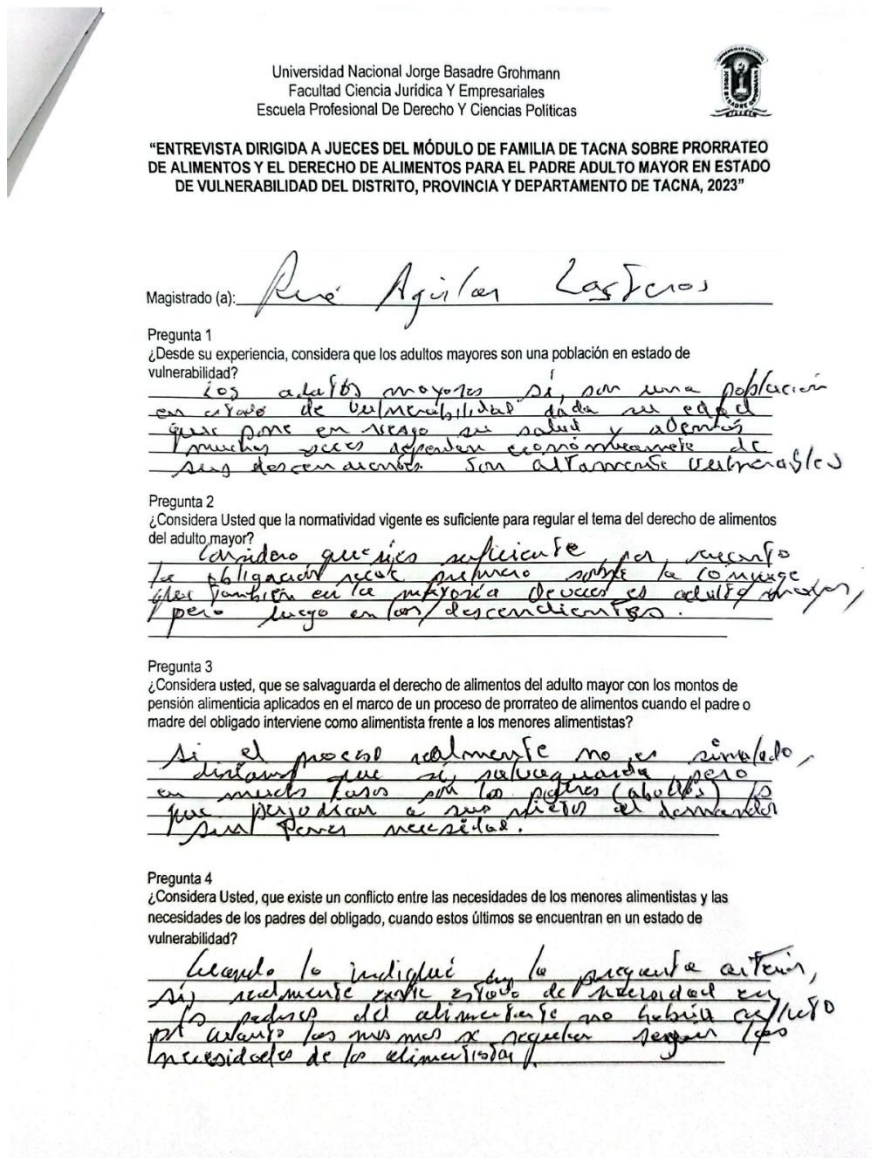 Universidad Nacional Jorge Basadre Grohmann
Facultad Ciencia Jurídica Y Empresariales
Escuela Profesional De Derecho Y Ciencias Políticas
“ENTREVISTA DIRIGIDA A JUECES DEL MÓDULO DE FAMILIA DE TACNA SOBRE PRORRATEO
DE ALIMENTOS Y EL DERECHO DE ALIMENTOS PARA EL PADRE ADULTO MAYOR EN ESTADO
DE VULNERABILIDAD DEL DISTRITO, PROVINCIA Y DEPARTAMENTO DE TACNA, 2023”
Magistrado (a): René Aguilar
Pregunta 1
¿Desde su experiencia, considera que los adultos mayores son una población en estado de
vulnerabilidad?
Los adultos mayores si, son una población
en estado de vulnerabilidad dada su edad
que pone en riesgo su salud y además
muchas veces dependen económicamente de
sus descendientes. Son altamente vulnerables
Pregunta 2
¿Considera Usted que la normatividad vigente es suficiente para regular el tema del derecho de alimentos
del adulto mayor?
Considero que si es suficiente, por cuanto
la obligación recae primero sobre la conyuge
que también en la mayoría de veces es adulto mayor,
pero luego en los descendientes.
Pregunta 3
¿Considera usted, que se salvaguarda el derecho de alimentos del adulto mayor con los montos de
pensión alimenticia aplicados en el marco de un proceso de prorrateo de alimentos cuando el padre o
madre del obligado interviene como alimentista frente a los menores alimentistas?
Si el proceso realmente no es simulado,
diríamos que si, salvaguarda pero
en muchos casos son los padres (abuelos) los
que perjudican a sus nietos al demandar
sin tener necesidad.
Pregunta 4
¿Considera Usted, que existe un conflicto entre las necesidades de los menores alimentistas y las
necesidades de los padres del obligado, cuando estos últimos se encuentran en un estado de
vulnerabilidad?
lo indiqué en la pregunta anterior,
si, realmente existe estado de necesidad en
los padres del alimentante no habría conflicto
por cuanto las mismas se regulan según las
necesidades de los alimentistas.